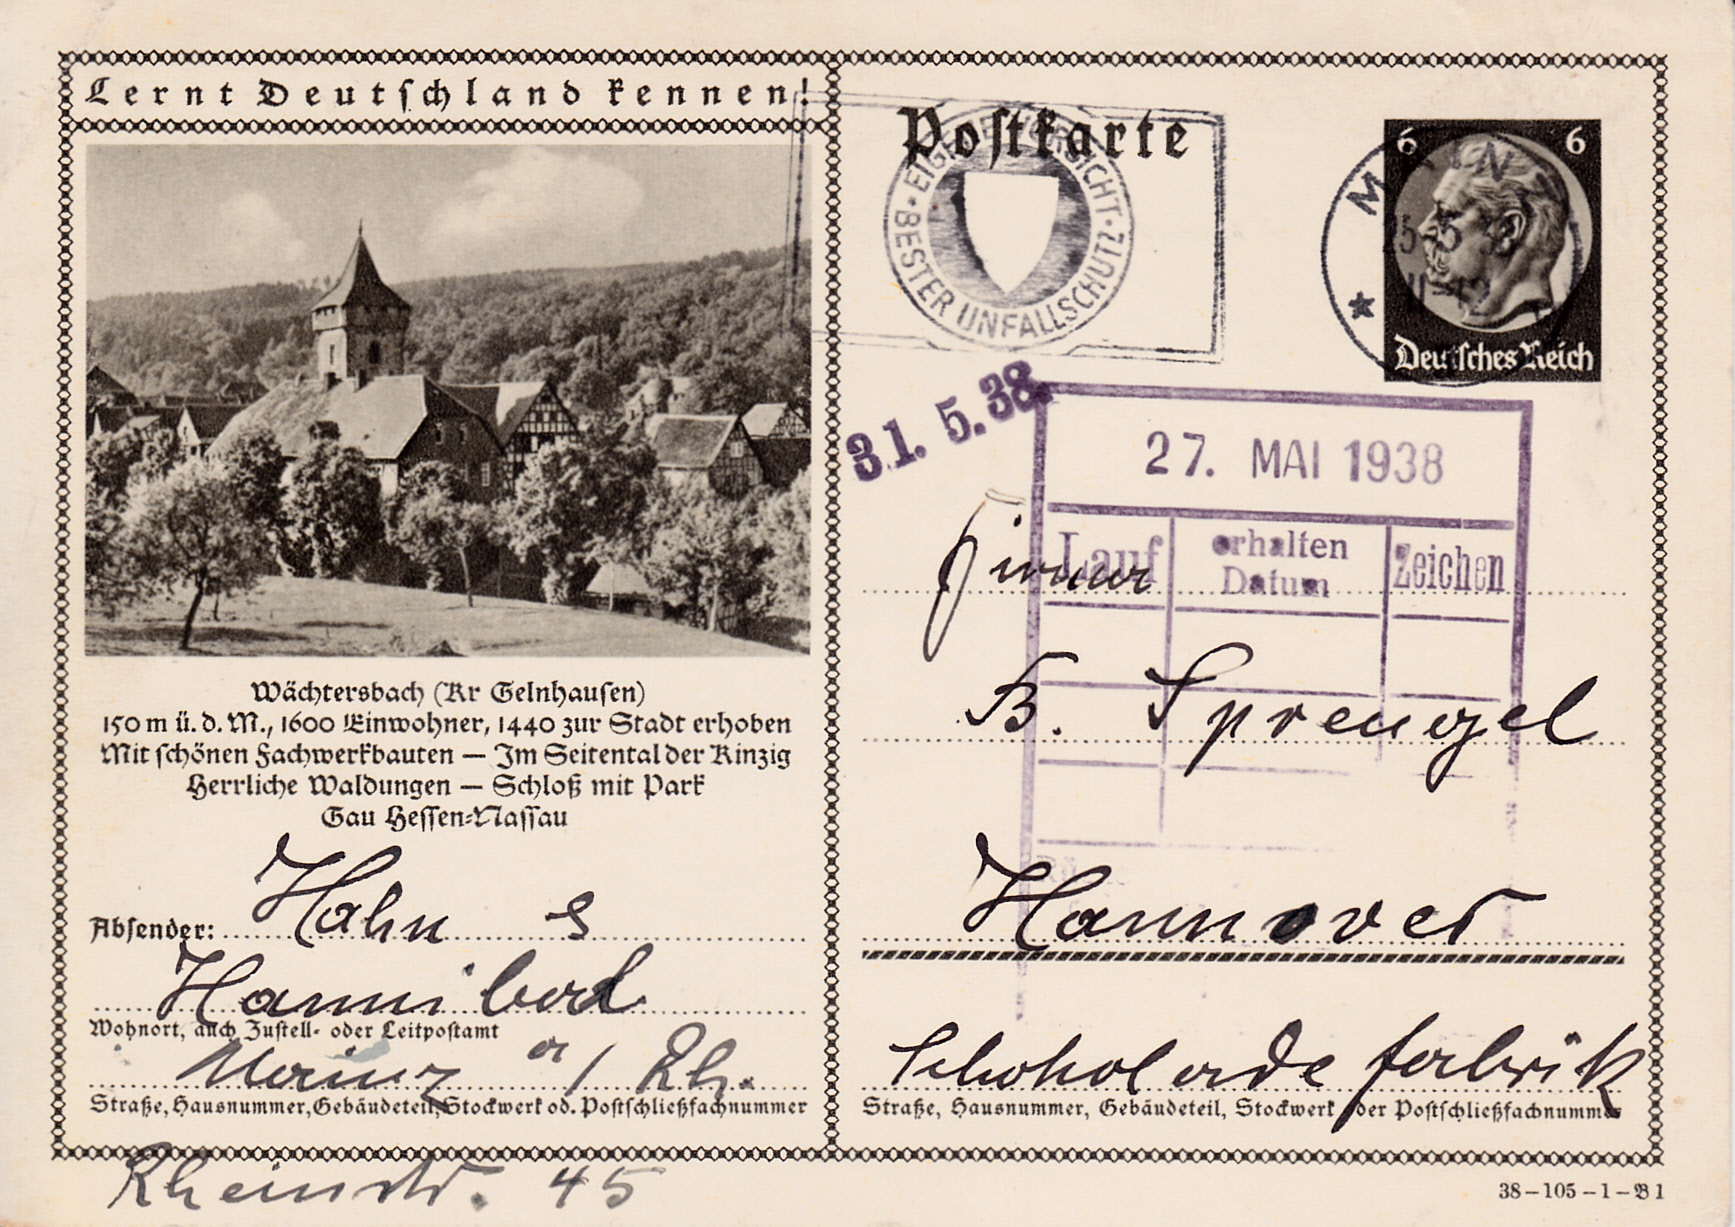 Lernt Deutschland kennen!
Wächtersbach (Kr Gelnhausen)
150 m ü. d. M., 1600 Einwohner, 1440 zur Stadt erhoben
Mit schönen Fachwerkbauten — Im Seitental der Kinzig
Herrliche Waldungen — Schloß mit Park
Gau Hessen-Nassau
Absender: Hahn
Hannibal
Wohnort, auch Zustell- oder Leitpostamt
Mainz a/Rh.
Straße, Hausnummer, Gebäudeteil, Stockwerk od. Postschließfachnummer
Rheinstr. 45
Postkarte
EIGENE VORSICHT
BESTER UNFALLSCHUTZ
MAINZ
6 6
Deutsches Reich
31. 5. 38
27. MAI 1938
Lauf erhalten Datum Zeichen
Firma
B. Sprengel
Hannover
Schokoladefabrik
Straße, Hausnummer, Gebäudeteil, Stockwerk oder Postschließfachnummer
38 – 105 – 1 – B 1